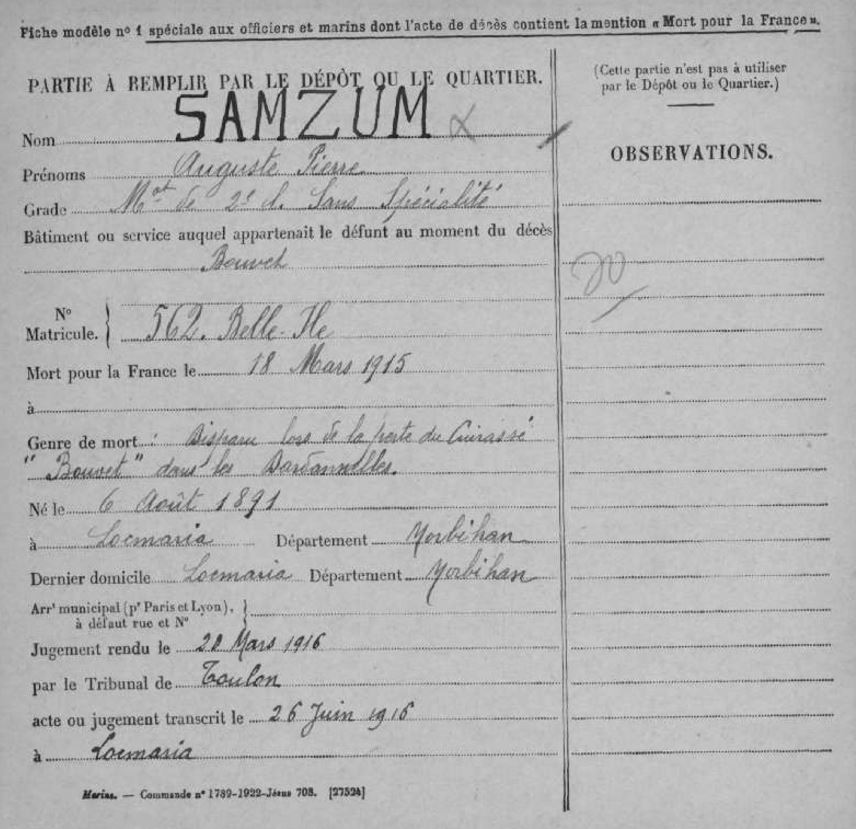 Fiche modèle nº 1 spéciale aux officiers et marins dont l'acte de décès contient la mention « Mort pour la France ».
PARTIE À REMPLIR PAR LE DÉPÔT OU LE QUARTIER.
Nom SAMZUM
Prénoms Auguste Pierre
Grade Mot de 2e cl. Sans Spécialité
Bâtiment ou service auquel appartenait le défunt au moment du décès
Bouvet
Nº Matricule. 562. Belle-Ile
Mort pour la France le 18 Mars 1915
à
Genre de mort : Disparu lors de la perte du Cuirassé
"Bouvet" dans les Dardannelles.
Né le 6 Août 1891
à Locmaria Département Morbihan
Dernier domicile Locmaria Département Morbihan
Arrt municipal (pr Paris et Lyon),
à défaut rue et Nº
Jugement rendu le 28 Mars 1916
par le Tribunal de Toulon
acte ou jugement transcrit le 26 Juin 1916
à Locmaria
Marine. — Commande nº 1789-1922-Jésus 708. [27524]
(Cette partie n'est pas à utiliser
par le Dépôt ou le Quartier.)
OBSERVATIONS.